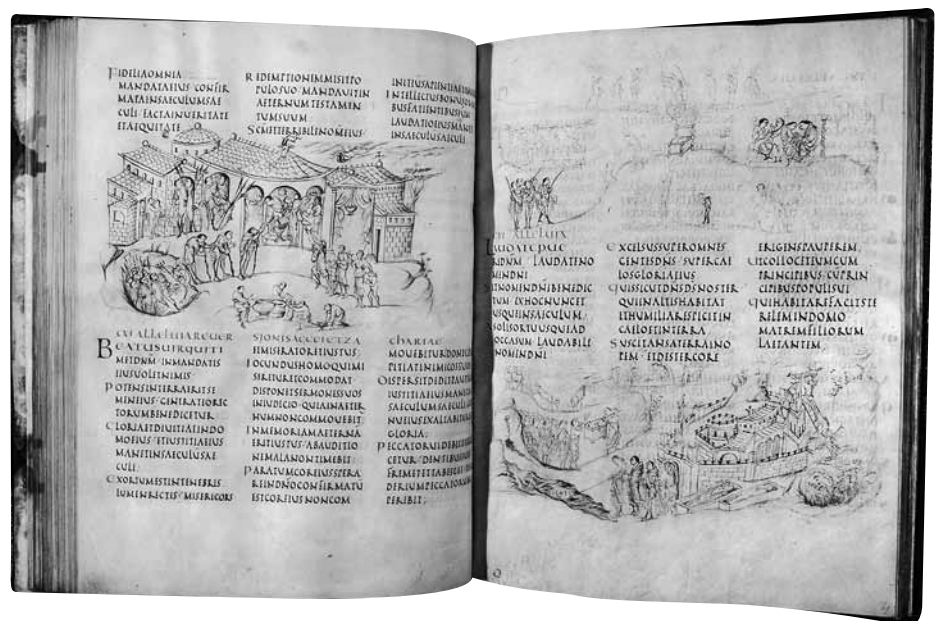 FIDELIAOMNIA
MANDATAEIUS CONFIR
MATAINSAECULUMSAE
CULI FACTAINUERITATE
ETAEQUITATE
REDEMPTIONEMMISITPO
PULOSUO MANDAUITIN
AETERNUMTESTAMEN
TUMSUUM
SCMETTERRIBILENOMEIUS
INTELLECTUSBONUS
BUSFACIENTIBUSEUM
LAUDATIOEIUSMANET
INSAECULUSAECULI
CXI ALLELUIAREUER
BEATUSUIRQUITI
METDNM INMANDATIS
EIUSUOLETNIMIS
POTENSINTERRAERITSE
MENEIUS GENERATIOREC
TORUMBENEDICETUR
GLORIAETDIUITIAEINDO
MOEIUS ETIUSTITIAEIUS
MANETINSAECULUSAE
CULI
EXORTUMESTINTENEBRIS
LUMENRECTIS MISERICORS
SIONISAGGEIETZA
ETMISERATORETIUSTUS
IOCUNDUSHOMOQUIMI
SERETURETCOMMODAT
DISPONETSERMONESSUOS
INIUDICIO QUIAINAETER
NUMNONCOMMOUEBIT
INMEMORIAMAETERNA
ERITIUSTUS ABAUDITIO
NEMALANONTIMEBIT
PARATUMCOREIUSSPERA
REINDNOCONFIRMATU
ESTCOREIUSNONCOM
CHARIAE
MOUEBITURDONEC
DISPERSITDEDITPAU
IUSTITIAEIUSMANET
SAECULUMSAECULI
NUEIUSEXALTABITUR
GLORIA
PECCATORUIDEBIT
CETUR DENTIBUS
FREMETETTABESCET
DERIUMPECCATORUM
PERIBIT
CXII ALLELUIA
LAUDATEPUE
RIDNM LAUDATENO
MENDNI
SITNOMENDNIBENEDIC
TUM EXHOCNUNCET
USQUEINSAECULUM
ASOLISORTUUSQUEAD
OCCASUM LAUDABILE
NOMENDNI
EXCELSUSSUPEROMNES
GENTESDNS SUPERCAE
LOSGLORIAEIUS
QUISSICUTDNSDSNOSTER
QUIINALTISHABITAT
ETHUMILIARESPICITIN
CAELOETINTERRA
SUSCITANSATERRAINO
PEM ETDESTERCORE
ERIGENSPAUPEREM
UTCOLLOCETEUMCUM
PRINCIPIBUS CUPRIN
CIPIBUSPOPULISUI
QUIHABITAREFACITSTE
RILEMINDOMO
MATREMFILIORUM
LAETANTEM